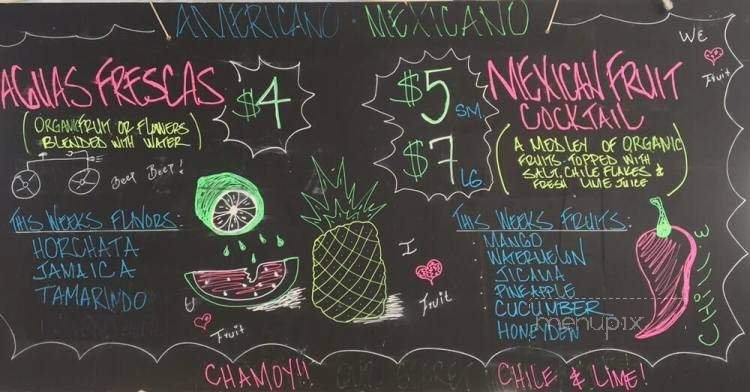 AMERICANO · MEXICANO
WE
Fruit
AGUAS FRESCAS
$4
(ORGANIC FRUIT OR FLOWERS
BLENDED WITH WATER)
Beep Beep!
THIS WEEKS FLAVORS:
HORCHATA
JAMAICA
TAMARINDO
U
Fruit
I
Fruit
$5 SM
$7 LG
MEXICAN FRUIT
COCKTAIL
(A MEDLEY OF ORGANIC
FRUITS TOPPED WITH
SALT, CHILE FLAKES &
FRESH LIME JUICE)
THIS WEEKS FRUITS:
MANGO
WATERMELON
JICAMA
PINEAPPLE
CUCUMBER
HONEYDEW
menupix
CHAMOY!!
CHILE & LIME!